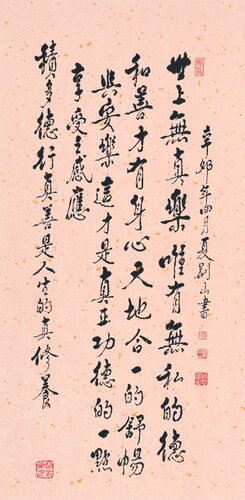 世上無真樂唯有無私的德
和善才有身心天地合一的舒暢
與安樂這才是真正功德的一點
享受之感應
積多德行真善是人生的真修養
辛卯年四月夏